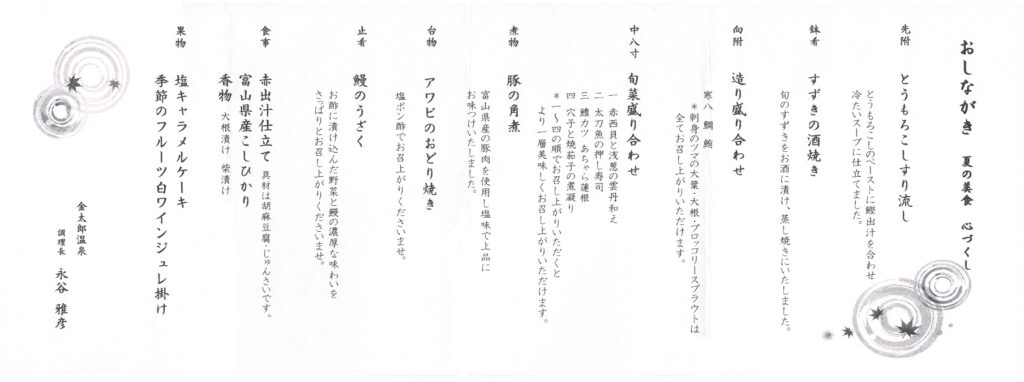 おしながき 夏の美食 心づくし
先附 とうもろこしすり流し
とうもろこしのペーストに鰹出汁を合わせ
冷たいスープに仕立てました。
鉢肴 すずきの酒焼き
旬のすずきをお酒に漬け、蒸し焼きにいたしました。
向附 造り盛り合わせ
寒八 鯛 鮪
*刺身のツマの大葉・大根・ブロッコリースプラウトは
全てお召し上がりいただけます。
中八寸 旬菜盛り合わせ
一 赤西貝と浅葱の雲丹和え
二 太刀魚の押し寿司
三 鱧カツ あちゃら蓮根
四 穴子と焼茄子の煮凝り
*一～四の順でお召し上がりいただくと
より一層美味しくお召し上がりいただけます。
煮物 豚の角煮
富山県産の豚肉を使用し塩味で上品に
お味つけいたしました。
台物 アワビのおどり焼き
塩ポン酢でお召し上がりくださいませ。
止肴 鰻のうざく
お酢に漬け込んだ野菜と鰻の濃厚な味わいを
さっぱりとお召し上がりくださいませ。
食事 赤出汁仕立て 具材は胡麻豆腐・じゅんさいです。
富山県産こしひかり
香物 大根漬け 柴漬け
果物 塩キャラメルケーキ
季節のフルーツ白ワインジュレ掛け
金太郎温泉
調理長 永谷 雅彦